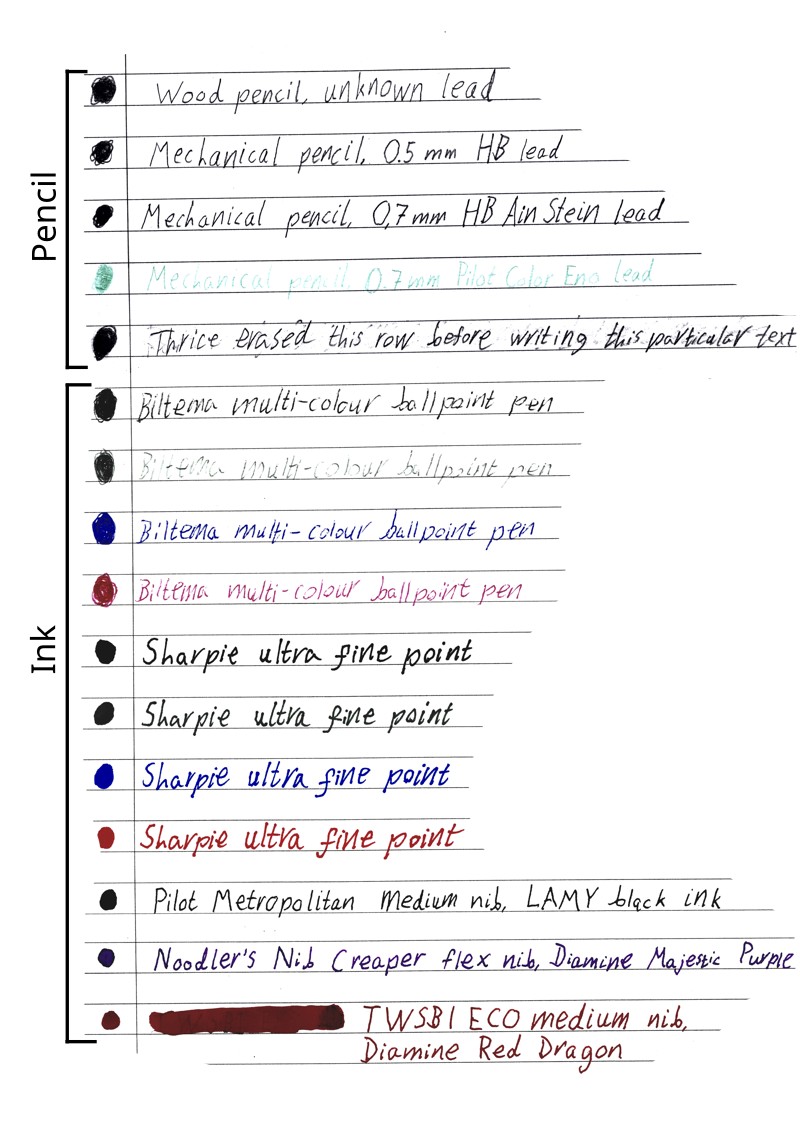 Pencil
Wood pencil, unknown lead
Mechanical pencil, 0.5 mm HB lead
Mechanical pencil, 0,7mm HB Ain Stein lead
Mechanical pencil, 0.7mm Pilot Color Eno lead
Thrice erased this row before writing this particular text
Ink
Biltema multi-colour ballpoint pen
Biltema multi-colour ballpoint pen
Biltema multi-colour ballpoint pen
Biltema multi-colour ballpoint pen
Sharpie ultra fine point
Sharpie ultra fine point
Sharpie ultra fine point
Sharpie ultra fine point
Pilot Metropolitan Medium nib, LAMY black ink
Noodler's Nib Creaper flex nib, Diamine Majestic Purple
TWSBI ECO medium nib,
Diamine Red Dragon